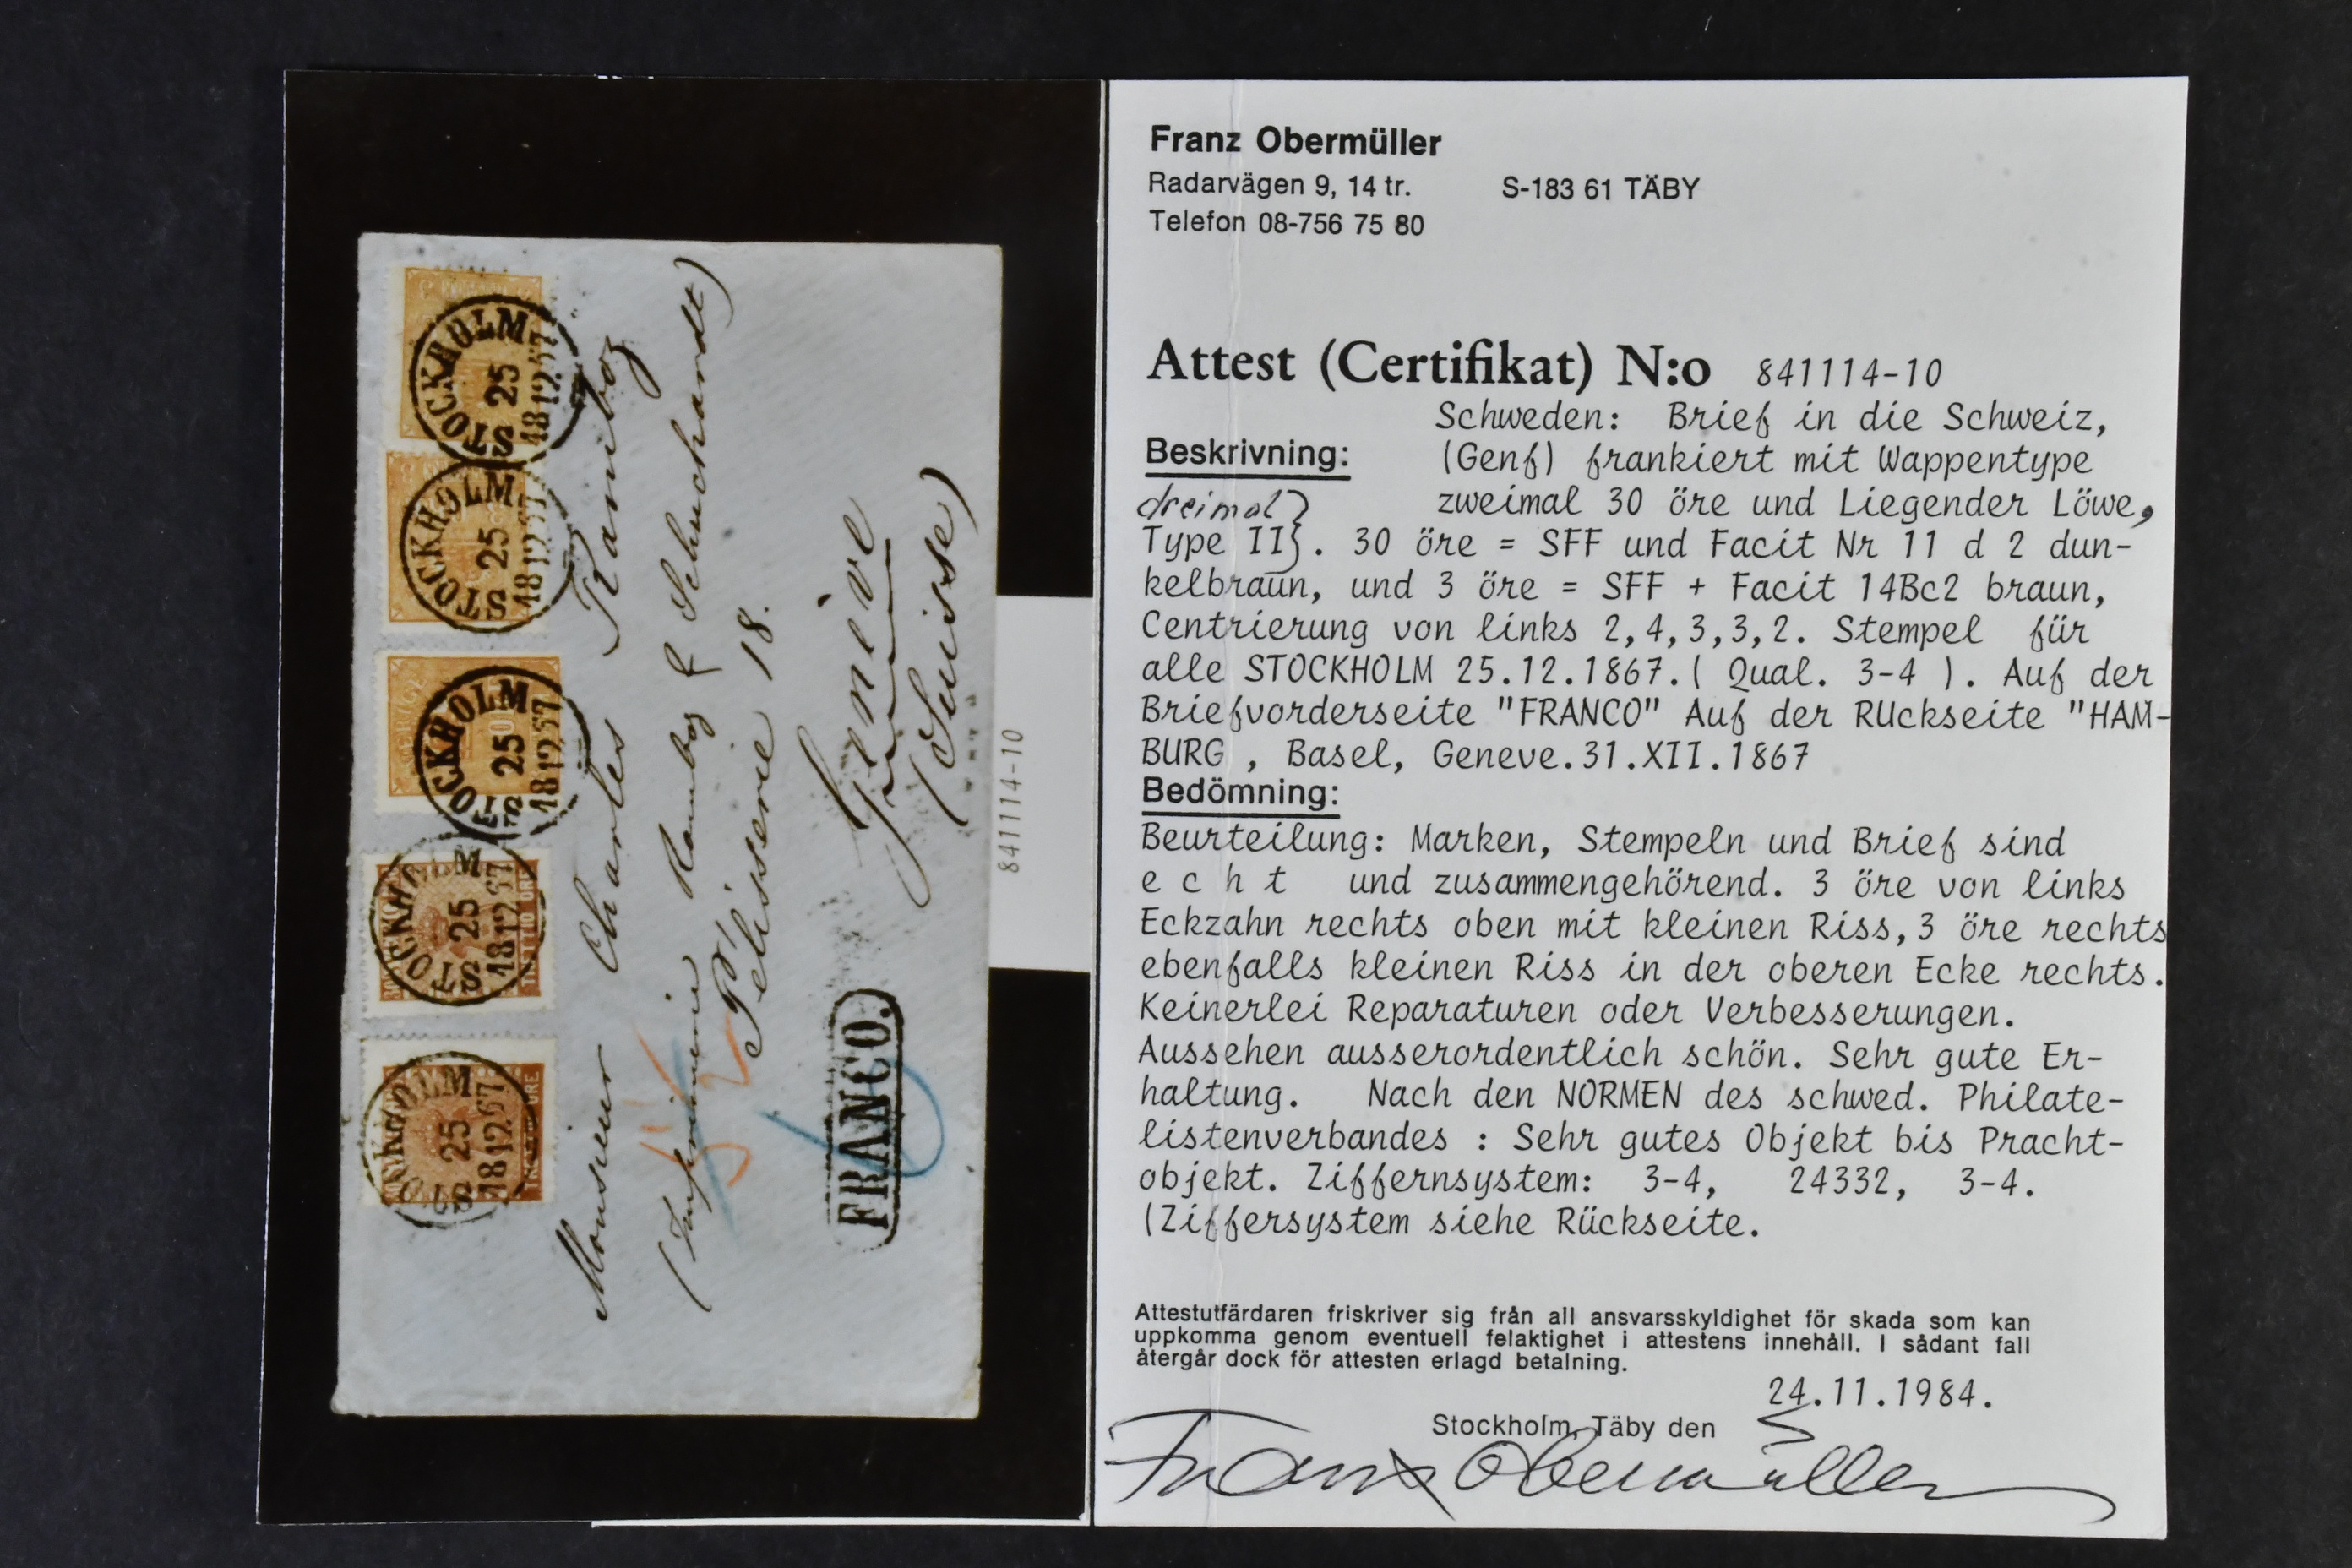 STOCKHOLM
25
18 12.67
STOCKHOLM
25
18 12.67
STOCKHOLM
25
18 12.67
STOCKHOLM
25
18 12.67
TRETTIO ÖRE
STOCKHOLM
25
18 12.67
ÖRE
Monsieur Charles Ramboz
Ramboz & Schuchardt)
Pélisserie 18.
Genève
(Suisse)
FRANCO.
841114-10
Franz Obermüller
Radarvägen 9, 14 tr. S-183 61 TÄBY
Telefon 08-756 75 80
Attest (Certifikat) N:o 841114-10
Schweden: Brief in die Schweiz,
Beskrivning: (Genf) frankiert mit Wappentype
dreimal} zweimal 30 öre und Liegender Löwe,
Type II}. 30 öre = SFF und Facit Nr 11 d 2 dun-
kelbraun, und 3 öre = SFF + Facit 14Bc2 braun,
Centrierung von links 2,4,3,3,2. Stempel für
alle STOCKHOLM 25.12.1867.( Qual. 3-4 ). Auf der
Briefvorderseite "FRANCO" Auf der RUckseite "HAM-
BURG , Basel, Geneve.31.XII.1867
Bedömning:
Beurteilung: Marken, Stempeln und Brief sind
e c h t und zusammengehörend. 3 öre von links
Eckzahn rechts oben mit kleinen Riss,3 öre rechts
ebenfalls kleinen Riss in der oberen Ecke rechts.
Keinerlei Reparaturen oder Verbesserungen.
Aussehen ausserordentlich schön. Sehr gute Er-
haltung. Nach den NORMEN des schwed. Philate-
listenverbandes : Sehr gutes Objekt bis Pracht-
objekt. Ziffernsystem: 3-4, 24332, 3-4.
(Ziffersystem siehe Rückseite.
Attestutfärdaren friskriver sig från all ansvarsskyldighet för skada som kan
uppkomma genom eventuell felaktighet i attestens innehåll. I sådant fall
återgår dock för attesten erlagd betalning.
24.11.1984.
Stockholm, Täby den
Franz Obermüller